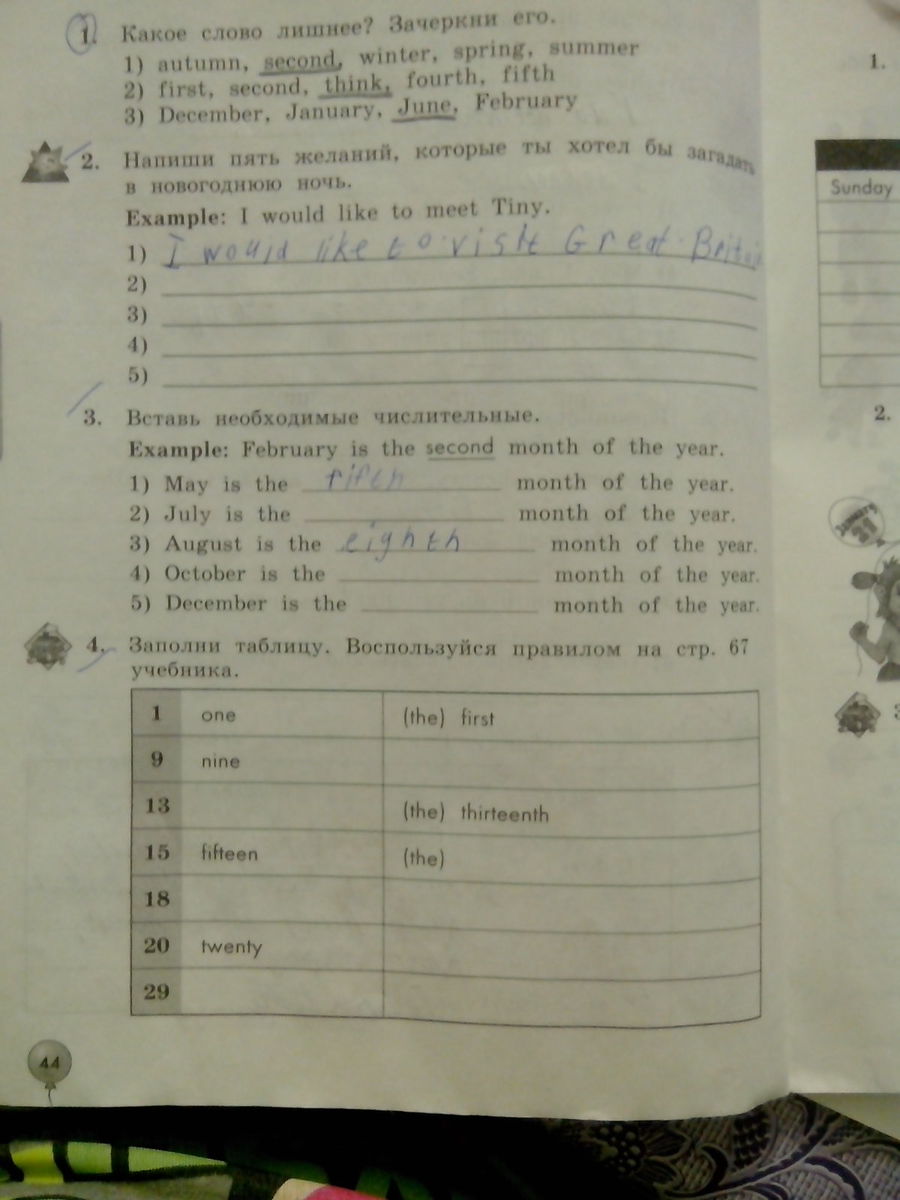 1. Какое слово лишнее? Зачеркни его.
1) autumn, second, winter, spring, summer
2) first, second, think, fourth, fifth
3) December, January, June, February
2. Напиши пять желаний, которые ты хотел бы загадать
в новогоднюю ночь.
Example: I would like to meet Tiny.
1) I would like to visit Great Britain
2)
3)
4)
5)
3. Вставь необходимые числительные.
Example: February is the second month of the year.
1) May is the fifth month of the year.
2) July is the month of the year.
3) August is the eighth month of the year.
4) October is the month of the year.
5) December is the month of the year.
4. Заполни таблицу. Воспользуйся правилом на стр. 67
учебника.
1 one (the) first
9 nine
13 (the) thirteenth
15 fifteen (the)
18
20 twenty
29
44
1.
Sunday
2.